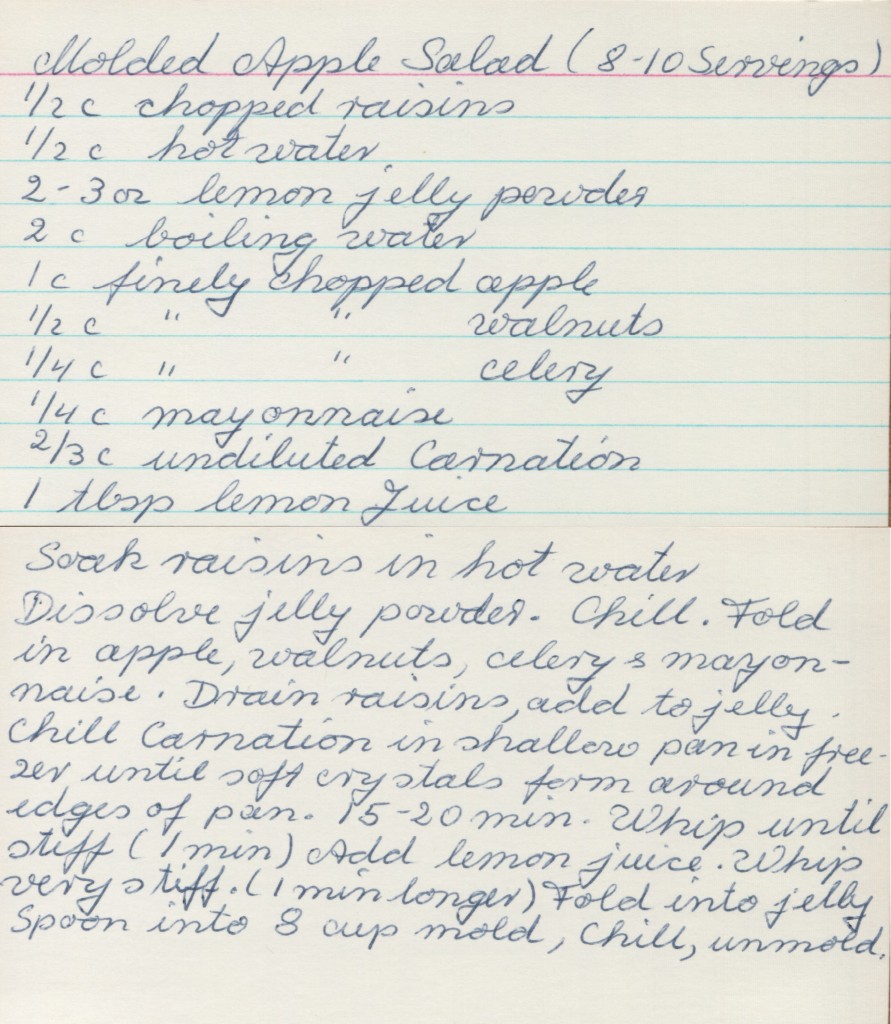 Molded Apple Salad (8-10 Servings)
1/2 c chopped raisins
1/2 c hot water
2-3 oz lemon jelly powder
2 c boiling water
1 c finely chopped apple
1/2 c " " walnuts
1/4 c " " celery
1/4 c mayonnaise
2/3 c undiluted Carnation
1 tbsp lemon Juice
Soak raisins in hot water
Dissolve jelly powder. Chill. Fold
in apple, walnuts, celery & mayon-
naise. Drain raisins, add to jelly.
Chill Carnation in shallow pan in free-
zer until soft crystals form around
edges of pan. 15-20 min. Whip until
stiff (1 min) Add lemon juice. Whip
very stiff. (1 min longer) Fold into jelly
Spoon into 8 cup mold, Chill, unmold.